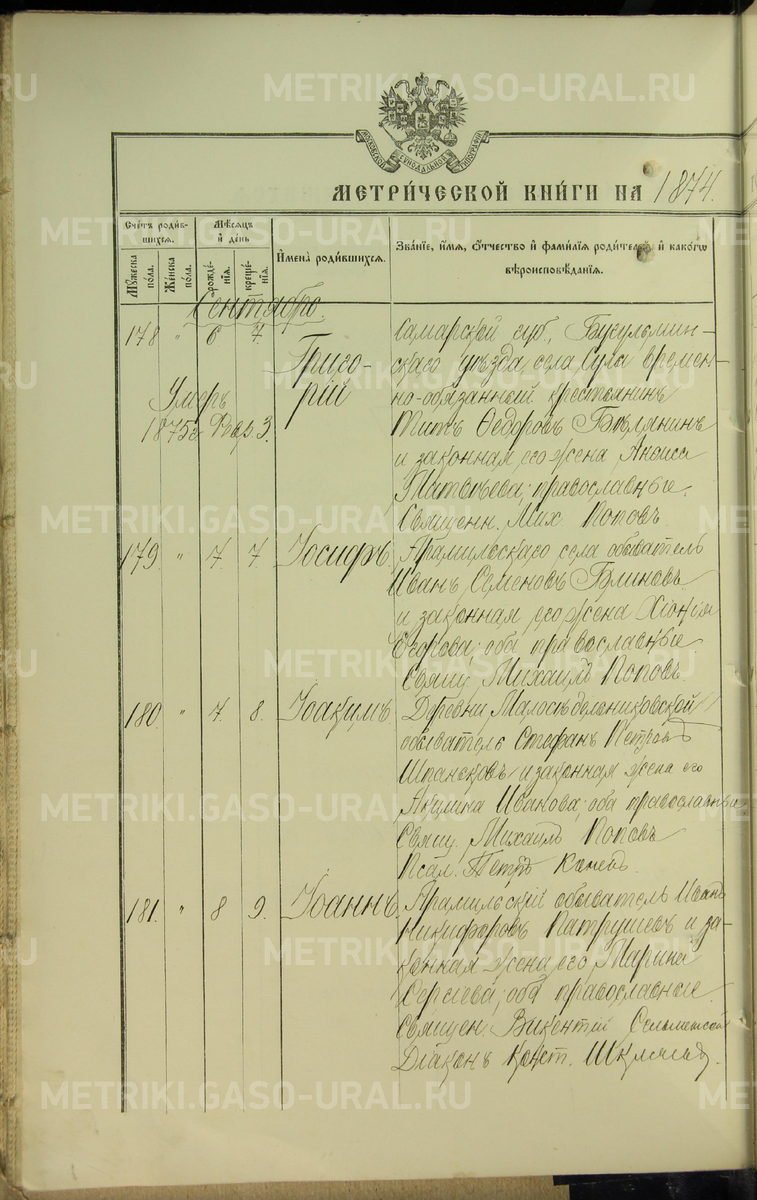 METRIKI.GASO-URAL.RU
МОСКОВСКОЙ СѴНОДАЛЬНОЙ ТИПОГРАФІИ
МЕТРИ́ЧЕСКОЙ КНИ́ГИ НА 1874.
Счетъ роди́в-
шихся.
Мꙋжеска
пола.
Женска
пола.
Мѣсяцъ
и҆ день
рожде-
нія.
креще-
нія.
И҆мена̀ роди́вшихся.
Зва́ніе, и҆́мя, ѻ҆́тчество и҆ фами́лія роди́телей, и҆ како́гѡ
вѣроисповѣ́данія.
Сентябрь.
178 " 6 7. Григо-
рій
Умеръ
1875г. Февр. 3.
Самарской губ., Бугульмин-
скаго уѣзда, села времен-
но-обязанный крестьянинъ
Титъ Ѳедоровъ
и законная его жена
Матвѣева; православные.
Священн. Мих. Поповъ
179. " 7. 7 Іосифъ.
Арамильскаго села обыватель
Иванъ Семеновъ Блиновъ
и законная его жена Хіонія
Егорова; оба православные.
Свящ. Михаилъ Поповъ
180. " 7. 8. Іоакимъ
Деревни Малосѣдельниковской
обыватель Стефанъ Петровъ
и законная жена его
Акулина Иванова; оба православные
Свящ. Михаилъ Поповъ
Псал. Петръ
181. " 8 9. Іоаннъ.
Арамильскій обыватель Иванъ
Никифоровъ Патрушевъ и за-
конная жена его Марина
Сергіева; оба православные.
Священ. Викентій
Діаконъ Конст.